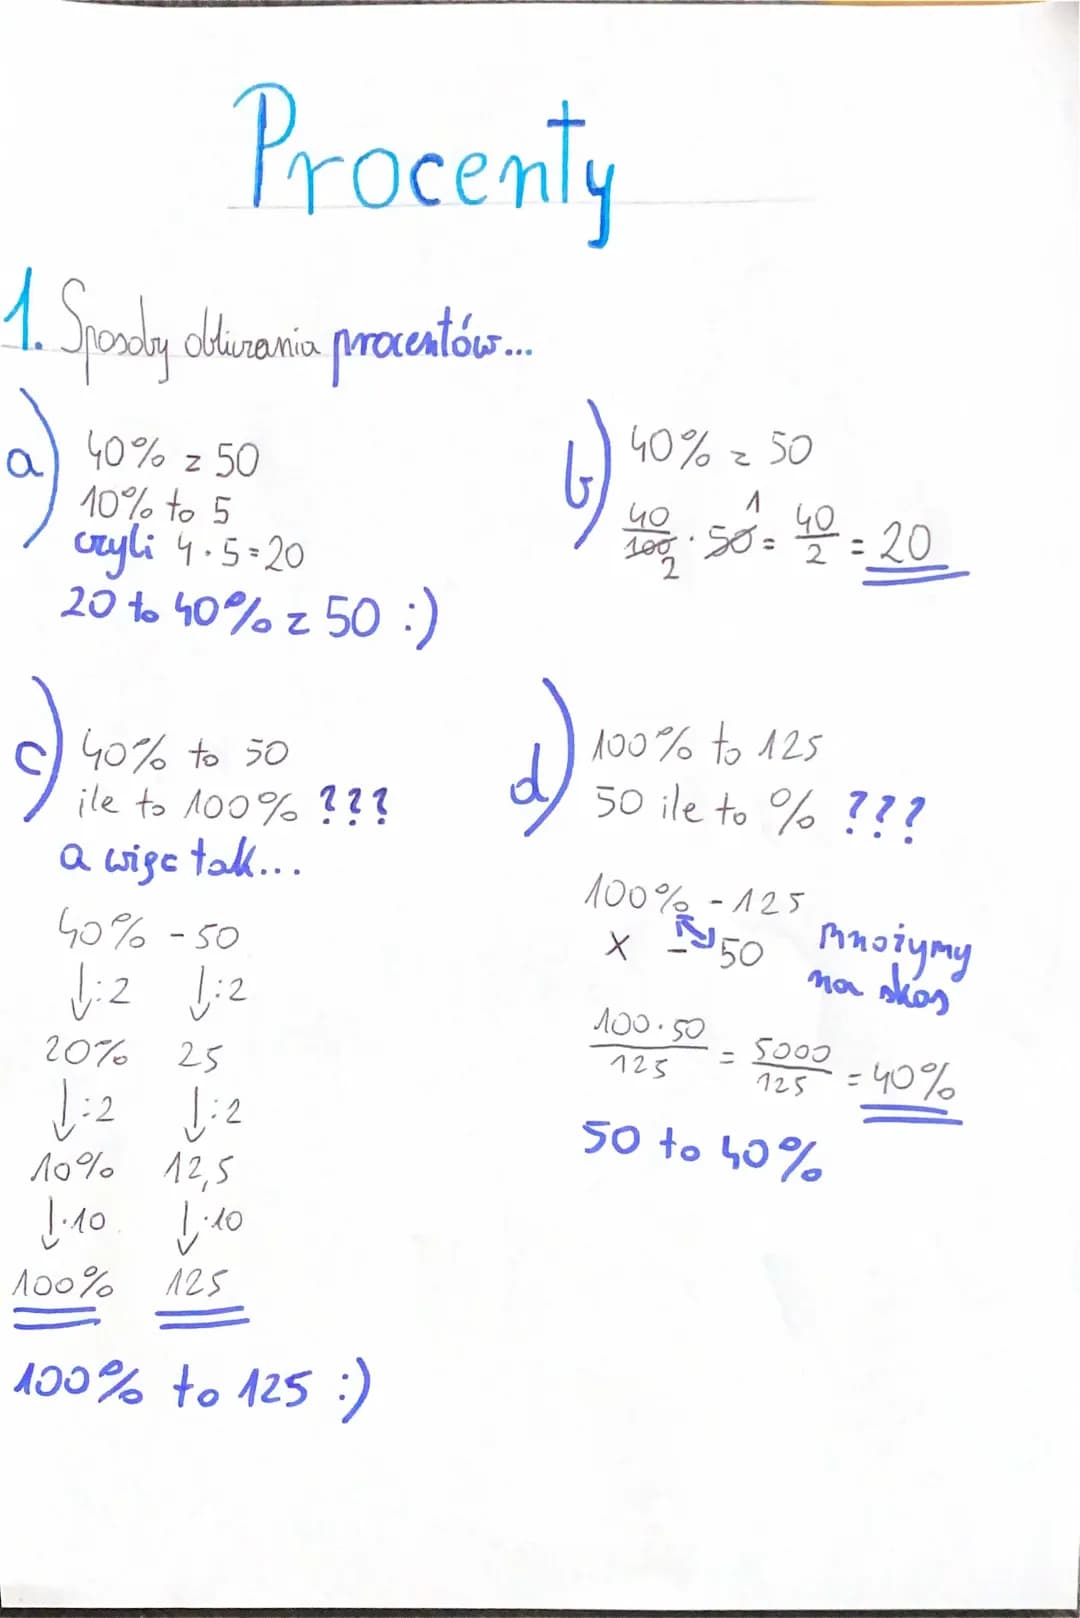 Procenty
1. Sposoby obliczania procentów...
a) 40% z 50
10% to 5
czyli 4 · 5 = 20
20 to 40% z 50 :)
b) 40% z 50
40/100 2 · 50 1 = 40/2 = 20
c) 40% to 50
ile to 100% ???
a więc tak...
40% - 50
↓:2 ↓:2
20% 25
↓:2 ↓:2
10% 12,5
↓·10 ↓·10
100% 125
100% to 125 :)
d) 100% to 125
50 ile to % ???
100% - 125
x - 50 mnożymy
na skos
100·50/125 = 5000/125 = 40%
50 to 40%